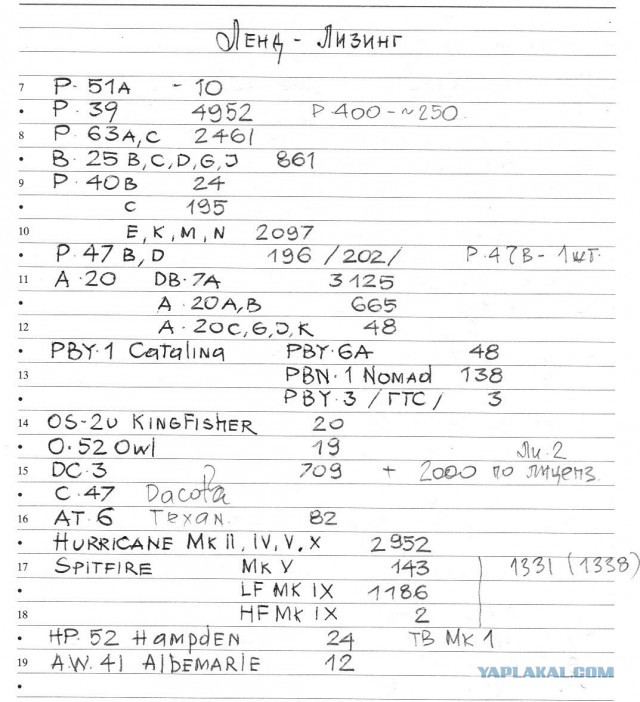 Ленд - Лизинг
7 P. 51A - 10
• P. 39 4952 P-400 - ~250
8 P. 63A,C 2461
• B. 25 B,C,D,G,J 861
9 P. 40B 24
• C 195
10 E,K,M,N 2097
• P. 47 B,D 196 /202/ P.47B - 1шт.
11 A.20 DB.7A 3125
• A.20A,B 665
12 A.20C,G,J,K 48
• PBY.1 Catalina PBY.6A 48
13 PBN.1 Nomad 138
• PBY.3 /ГТС/ 3
14 OS-2U KINGFISHER 20
• O.52 Owl 19 Ли.2
15 DC.3 709 + 2000 по лиценз.
• C.47 Dacota
16 AT.6 Техан. 82
• HURRICANE Mk II, IV, V, X 2952
17 SPITFIRE Mk V 143 1331 (1338)
• LF Mk IX 1186
18 HF Mk IX 2
• HP.52 Hampden 24 TB Mk 1
19 AW.41 Albemarle 12
•
YAPLAKAL.COM